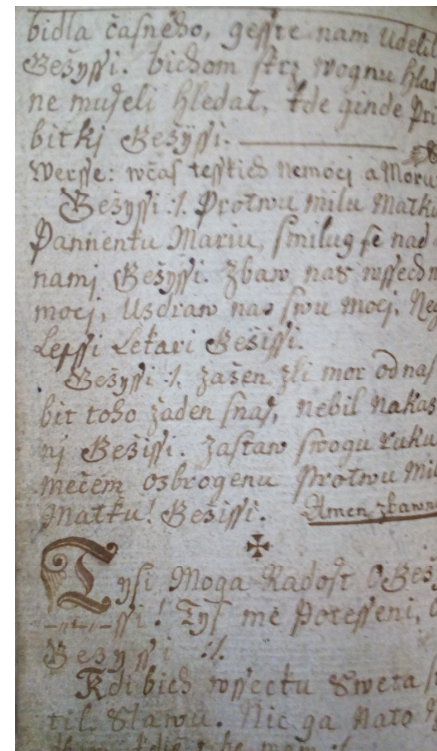 bidla časneho, gesste nam udelil
Gežyssi. bichom skrz wognu hlad
ne museli hledat, kde ginde Pri
bitkj Gežyssi.
Werse: wčas tesskich nemocj a Moru
Gežyssi :/. Protwu milu Matku
Pannenku Mariu, smilug se nad
namj Gežyssi. Zbaw nas wssech n
mocj, Uzdraw nas swu mocj. Neg
Lepssi Lekari Gežissi.
Gežyssi :/. Zažen zli mor od nas
bit toho žaden snas, nebil nakaž
nj Gežissi. Zastaw swogu ruku
mečem ozbrogenu Protwu Mi
Matku! Gežissi. Amen zbawn
Tysi Moga Radost O Gež
ssi! Tys me Potesseni,
Gežyssi :/.
Kdi bich wssecku Sweta
til Slawu. Nic ga Nato